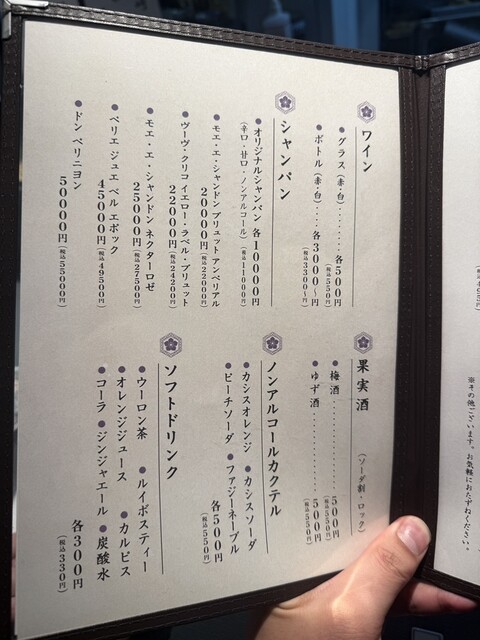 ワイン
●グラス(赤・白)........各500円
(税込550円)
●ボトル(赤・白)....各3000~円
(税込3300~円)
シャンパン
●オリジナルシャンパン 各10000円
(辛口・甘口・ノンアルコール) (税込11000円)
●モエ・エ・シャンドン ブリュット アンペリアル
20000円(税込22000円)
●ヴーヴ・クリコ イエロー・ラベル・ブリュット
22000円(税込24200円)
●モエ・エ・シャンドン ネクターロゼ
25000円(税込27500円)
●ペリエ ジュエ ベル エポック
45000円(税込49500円)
●ドン ペリニヨン
50000円(税込55000円)
果実酒 (ソーダ割・ロック)
●梅酒..............500円
(税込550円)
●ゆず酒............500円
(税込550円)
ノンアルコールカクテル
●カシスオレンジ ●カシスソーダ
●ピーチソーダ ●ファジーネーブル
各500円
(税込550円)
ソフトドリンク
●ウーロン茶 ●ルイボスティー
●オレンジジュース ●カルピス
●コーラ ●ジンジャエール ●炭酸水
各300円
(税込330円)
※その他ございます。お気軽におたずねください。